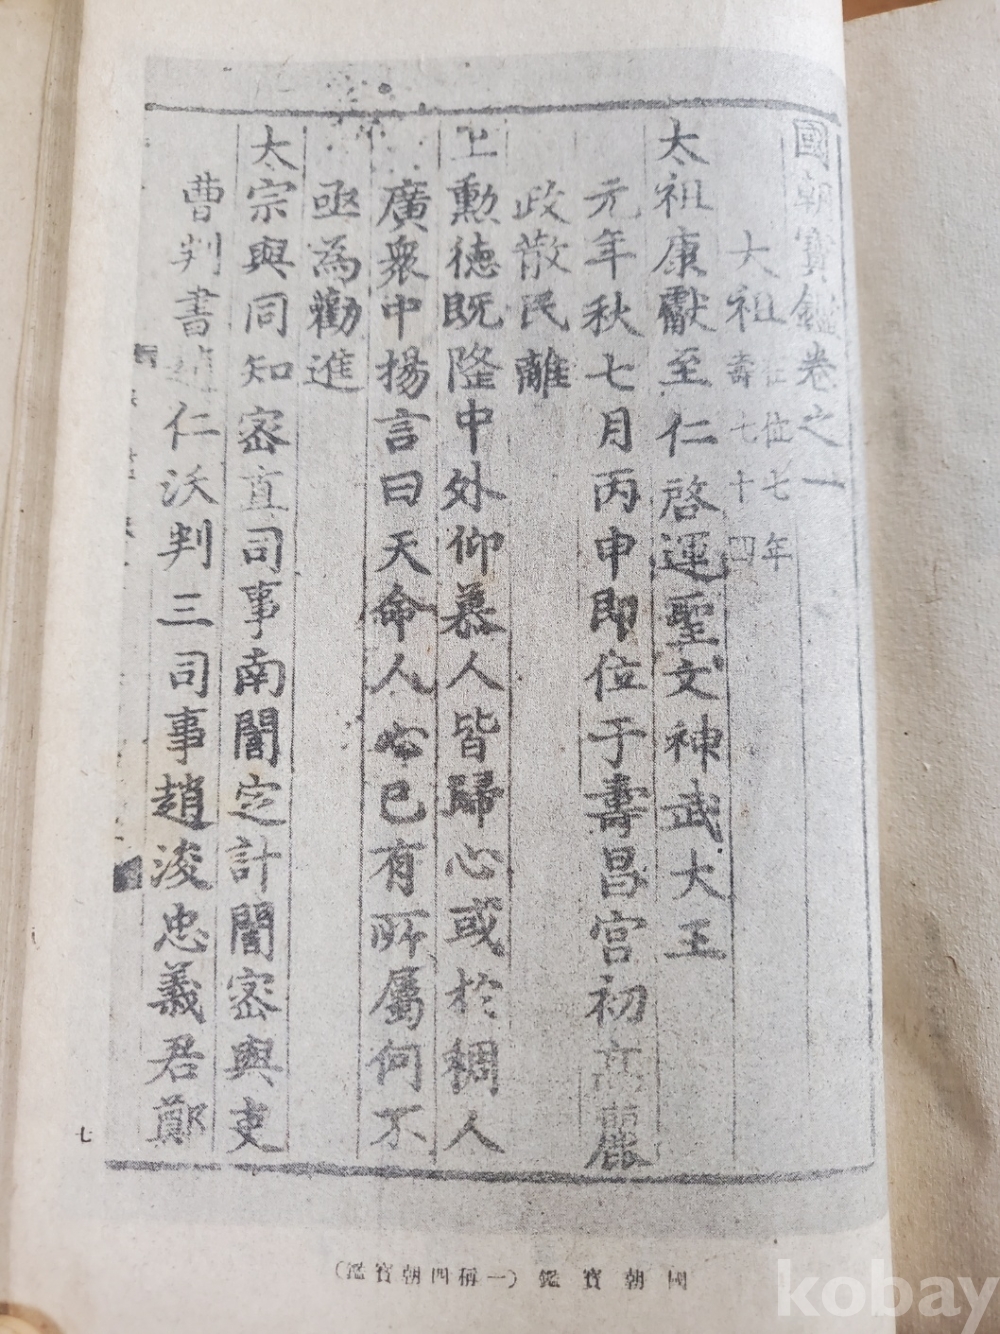 國朝寶鑑卷之一
太祖 在位七年
壽七十四
太祖康獻至仁啓運聖文神武大王
元年秋七月丙申即位于壽昌宮初高麗
政散民離
上勲德既隆中外仰慕人皆歸心或於稠人
廣衆中揚言曰天命人心已有所屬何不
亟爲勸進
太宗與同知密直司事南誾定計誾密與吏
曹判書趙仁沃判三司事趙浚忠義君鄭
七
國朝寶鑑(一稱四朝寶鑑)
kobay